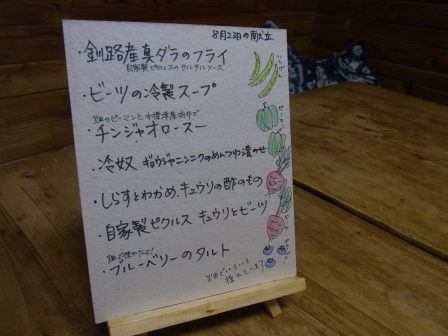 8月23日の献立
・釧路産真ダラのフライ
自家製ピクルスのタルタルソース
・ビーツの冷製スープ
畑のピーマンと中標津産肉牛で
・チンジャオロースー
・冷奴 ギョウジャニンニクのめんつゆ漬のせ
・しらすとわかめ、キュウリの酢のもの
・自家製ピクルス キュウリとビーツ
・ブルーベリーのタルト
ピーマン